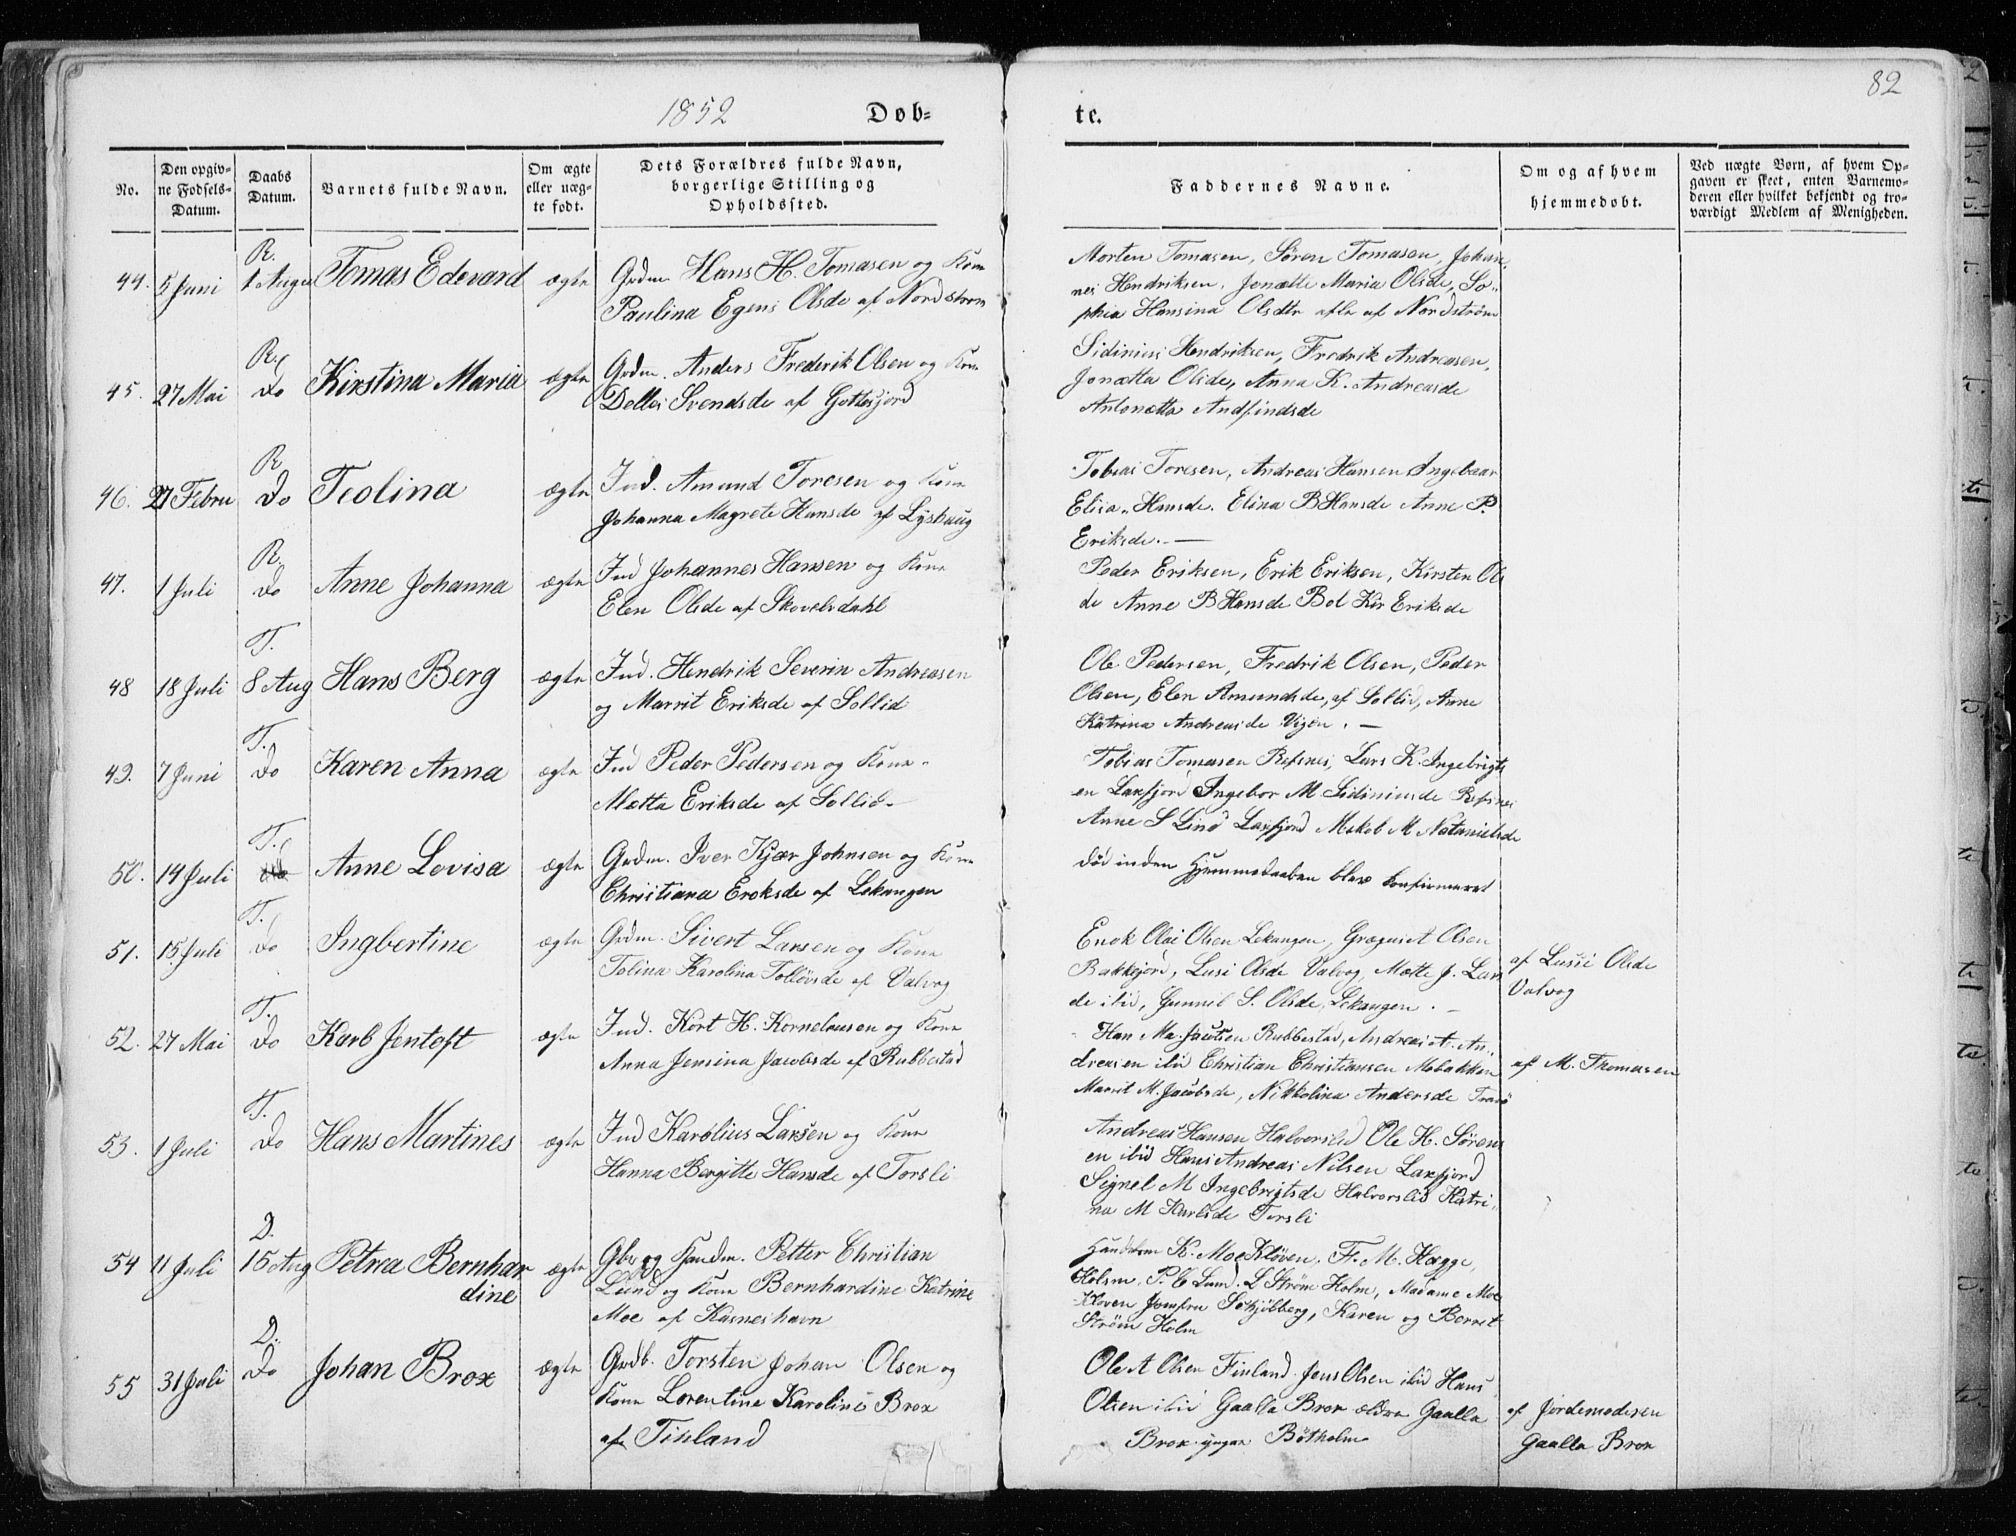 82
1852 Døb-
te.
No.
Den opgiv-
ne Fødsels-
Datum.
Daabs
Datum.
Barnets fulde Navn.
Om ægte
eller uæg-
te født.
Dets Forældres fulde Navn,
borgerlige Stilling og
Opholdssted.
Faddernes Navne.
Om og af hvem
hjemmedøbt.
Ved uægte Børn, af hvem Op-
gaven er skeet, enten Barnemo-
deren eller hvilket bekjendt og tro-
værdigt Medlem af Menigheden.
R.
44. 5 Juni 1 August Tomas Edevard ægte Grdm. Hans H. Tomasen og Kone
Paulina Egens Olsde af Nordstrøm
Morten Tomasen, Søren Tomasen, Johan-
nes Hendriksen, Jonætte Maria Olsde, So-
phia Hansina Olsdtr alle af Nordstrøm
R.
45. 27 Mai Do Kirstina Maria ægte Grdm. Anders Frederik Olsen og Kone
Delles Svendsde af Gottesjord
Sidinius Hendriksen, Fredrik Andreasen,
Jonætta Olsde, Anna K. Andreasde
Antonætta Andfindsde
R.
46. 27 Febru Do Teolina ægte Ind. Amund Toresen og Kone
Johanna Magrete Hansde af Lyshaug
Tobias Toresen, Andreas Hansen Ingebaar
Elisa Hansde. Elina B Hansde Anne P.
Eriksde. —
R.
47. 1 Juli Do Anne Johanna ægte Ind Johannes Hansen og Kone
Elen Olsde af Skovelsdahl
Peder Eriksen, Erik Eriksen, Kirsten Ols
de Anne B Hansde Bol Kir Eriksde
T.
48 18 Juli 8 Aug Hans Berg ægte Ind. Hendrik Severin Andreasen
og Marrit Eriksde af Sollid
Ole Pedersen, Fredrik Olsen, Peder
Olsen, Elen Amundsde, af Sollid, Anne
Katrina Andreasde Vigen. —
T.
49. 7 Juni Do Karen Anna ægte Ind Peder Pedersen og Kone
Mætta Eriksde af Sollid
Tobias Tomasen Refsnes, Lars K. Ingebrigts
en Laxfjord Ingebor M. Sidiniusde Refsnes
Anne S Lind Laxfjord Makob M Natanielsde
T.
50. 14 Juli Anne Lovisa ægte Grdm. Iver Kjær Johnsen og Kone
Christiana Eroksde af Lekangen
død inden Hjemmedaaben blev konfirmeret
T.
51. 15 Juli Do Ingbertine ægte Grdm. Sivert Larsen og Kone
Tolina Karolina Tolløvsde af Valvog
Enok Olai Olsen Lekangen, Græguist Olsen
Bakkejord, Lusi Olsde Valvog, Mætte J. Lars
de ibid, Gunnil S. Olsde, Lekangen. —
af Lussi Olsde
Valvog
T.
52. 27 Mai Do Karb Jentoft ægte Ind. Kort H. Korneliussen og Kone
Anna Jensina Jacobsde af Rubbestad
Han Ma. Jacobsen Rubbestad, Andreas A. An-
dreasen ibid Christian Christiansen Mobakken
Marrit M. Jacobsde, Nikkolina Andersde Tranø
af M. Thomasen
T.
53. 1 Juli Do Hans Martines ægte Ind Karolius Larsen og Kone
Hanna Bergitte Hansde af Torsli
Andreas Hansen Halvorslid Ole H. Sørens
en ibid Hans Andreas Nilsen Laxfjord
Signel M Ingebrigtsde Halvorslid Katri-
na M Karlsde Torsli
D.
54 11 Juli 15 Aug Petrea Bernhar
dine ægte Gbr og Handm. Petter Christian
Lund og Kone Bernhardine Katrine
Moe af Kasneshavn
Handelsm K. Moe Kløven. F. M. Hagge,
Holsm. P. C Lund. L Strøm Holm, Madame Moe
Kløven Jomfru Schjølberg, Karen og Berret
Strøm Holm
D.
55 31 Juli Do Johan Brox ægte Grdb. Torsten Johan Olsen og
Kone Lorentine Karoline Brox
af Finland
Ole A Olsen Finland. Jens Olsen ibid Hans
Olsen ibid Gaalla Brox ældre Gaalla
Brox yngre Bøtholm
af Jordemoderen
Gaalla Brox